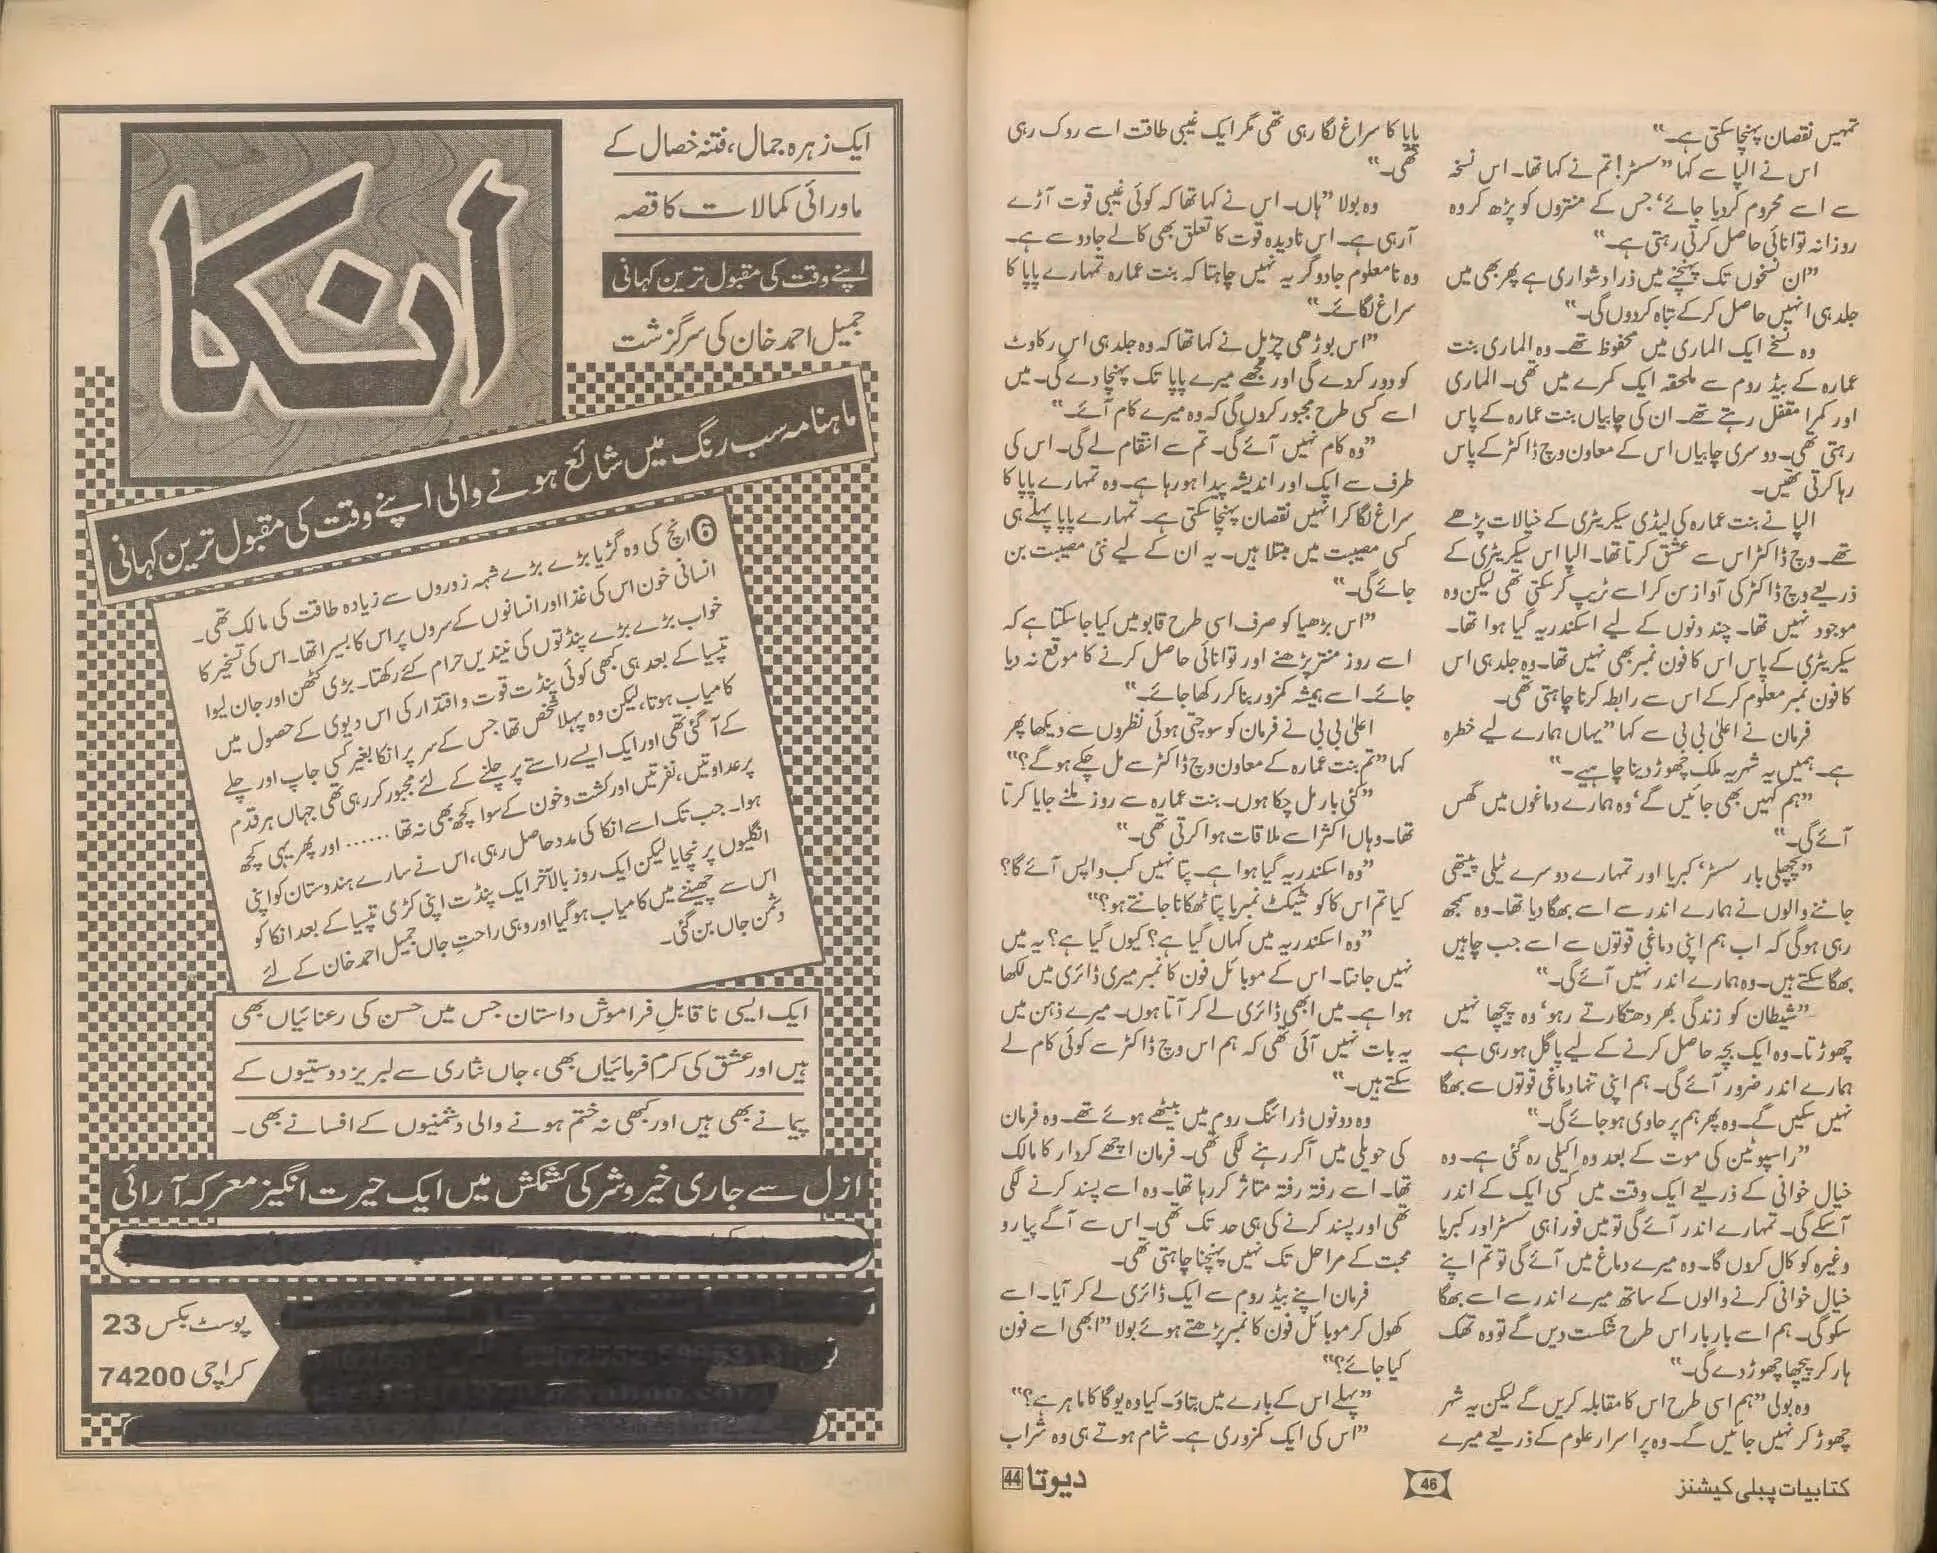 تمہیں نقصان پہنچا سکتی ہے۔"
اس نے الپا سے کہا "سسٹر! تم نے کہا تھا۔ اس نسخہ
سے اسے محروم کردیا جائے' جس کے منتروں کو پڑھ کر وہ
روزانہ توانائی حاصل کرتی رہتی ہے۔"
"ان نسخوں تک پہنچنے میں ذرا دشواری ہے پھر بھی میں
جلد ہی انہیں حاصل کرکے تباہ کردوں گی۔"
وہ نسخے ایک الماری میں محفوظ تھے۔ وہ الماری بنت
عمارہ کے بیڈ روم سے ملحقہ ایک کمرے میں تھی۔ الماری
اور کمرا مقفل رہتے تھے۔ ان کی چابیاں بنت عمارہ کے پاس
رہتی تھی۔ دوسری چابیاں اس کے معاون وچ ڈاکٹر کے پاس
رہا کرتی تھیں۔
الپا نے بنت عمارہ کی لیڈی سیکریٹری کے خیالات پڑھے
تھے۔ وچ ڈاکٹر اس سے عشق کرتا تھا۔ الپا اس سیکریٹری کے
ذریعے وچ ڈاکٹر کی آواز سن کر اسے ٹریپ کرسکتی تھی لیکن وہ
موجود نہیں تھا۔ چند دنوں کے لیے اسکندریہ گیا ہوا تھا۔
سیکریٹری کے پاس اس کا فون نمبر بھی نہیں تھا۔ وہ جلد ہی اس
کا فون نمبر معلوم کرکے اس سے رابطہ کرنا چاہتی تھی۔
فرمان نے اعلیٰ بی بی سے کہا "یہاں ہمارے لیے خطرہ
ہے۔ ہمیں یہ شہر یہ ملک چھوڑ دینا چاہیے۔"
"ہم کہیں بھی جائیں گے' وہ ہمارے دماغوں میں گھس
آئے گی۔"
"پچھلی بار سسٹر' کبریا اور تمہارے دوسرے ٹیلی پیتھی
جاننے والوں نے ہمارے اندر سے اسے بھگا دیا تھا۔ وہ سمجھ
رہی ہوگی کہ اب ہم اپنی دماغی قوتوں سے اسے جب چاہیں
بھگا سکتے ہیں۔ وہ ہمارے اندر نہیں آئے گی۔"
"شیطان کو زندگی بھر دھتکارتے رہو' وہ پیچھا نہیں
چھوڑتا۔ وہ ایک بچہ حاصل کرنے کے لیے پاگل ہورہی ہے۔
ہمارے اندر ضرور آئے گی۔ ہم اپنی تنہا دماغی قوتوں سے بھگا
نہیں سکیں گے۔ وہ پھر ہم پر حاوی ہوجائے گی۔"
"راسپوٹین کی موت کے بعد وہ اکیلی رہ گئی ہے۔ وہ
خیال خوانی کے ذریعے ایک وقت میں کسی ایک کے اندر
آسکے گی۔ تمہارے اندر آئے گی تو میں فوراً ہی سسٹر اور کبریا
وغیرہ کو کال کروں گا۔ وہ میرے دماغ میں آئے گی تو تم اپنے
خیال خوانی کرنے والوں کے ساتھ میرے اندر سے اسے بھگا
سکوگی۔ ہم اسے بار بار اس طرح شکست دیں گے تو وہ تھک
ہار کر پیچھا چھوڑ دے گی۔"
وہ بولی "ہم اسی طرح اس کا مقابلہ کریں گے لیکن یہ شہر
چھوڑ کر نہیں جائیں گے۔ وہ پراسرار علوم کے ذریعے میرے
پاپا کا سراغ لگا رہی تھی مگر ایک غیبی طاقت اسے روک رہی
تھی۔"
وہ بولا "ہاں۔ اس نے کہا تھا کہ کوئی غیبی قوت آڑے
آرہی ہے۔ اس نادیدہ قوت کا تعلق بھی کالے جادو سے ہے۔
وہ نامعلوم جادوگر یہ نہیں چاہتا کہ بنت عمارہ تمہارے پاپا کا
سراغ لگائے۔"
"اس بوڑھی چڑیل نے کہا تھا کہ وہ جلد ہی اس رکاوٹ
کو دور کردے گی اور مجھے میرے پاپا تک پہنچا دے گی۔ میں
اسے کسی طرح مجبور کروں گی کہ وہ میرے کام آئے۔"
"وہ کام نہیں آئے گی۔ تم سے انتقام لے گی۔ اس کی
طرف سے ایک اور اندیشہ پیدا ہورہا ہے۔ وہ تمہارے پاپا کا
سراغ لگا کر انہیں نقصان پہنچا سکتی ہے۔ تمہارے پاپا پہلے ہی
کسی مصیبت میں مبتلا ہیں۔ یہ ان کے لیے نئی مصیبت بن
جائے گی۔"
"اس بڑھیا کو صرف اسی طرح قابو میں کیا جاسکتا ہے کہ
اسے روز منتر پڑھنے اور توانائی حاصل کرنے کا موقع نہ دیا
جائے۔ اسے ہمیشہ کمزور بنا کر رکھا جائے۔"
اعلیٰ بی بی نے فرمان کو سوچتی ہوئی نظروں سے دیکھا پھر
کہا "تم بنت عمارہ کے معاون وچ ڈاکٹر سے مل چکے ہوگے؟"
"کئی بار مل چکا ہوں۔ بنت عمارہ سے روز ملنے جایا کرتا
تھا۔ وہاں اکثر اسے ملاقات ہوا کرتی تھی۔"
"وہ اسکندریہ گیا ہوا ہے۔ پتا نہیں کب واپس آئے گا؟
کیا تم اس کا کونٹیکٹ نمبر یا پتا ٹھکانا جانتے ہو؟"
"وہ اسکندریہ میں کہاں گیا ہے؟ کیوں گیا ہے؟ یہ میں
نہیں جانتا۔ اس کے موبائل فون کا نمبر میری ڈائری میں لکھا
ہوا ہے۔ میں ابھی ڈائری لے کر آتا ہوں۔ میرے ذہن میں
یہ بات نہیں آئی تھی کہ ہم اس وچ ڈاکٹر سے کوئی کام لے
سکتے ہیں۔"
وہ دونوں ڈرائنگ روم میں بیٹھے ہوئے تھے۔ وہ فرمان
کی حویلی میں آکر رہنے لگی تھی۔ فرمان اچھے کردار کا مالک
تھا۔ اسے رفتہ رفتہ متاثر کررہا تھا۔ وہ اسے پسند کرنے لگی
تھی اور پسند کرنے کی ہی حد تک تھی۔ اس سے آگے پیار و
محبت کے مراحل تک نہیں پہنچنا چاہتی تھی۔
فرمان اپنے بیڈ روم سے ایک ڈائری لے کر آیا۔ اسے
کھول کر موبائل فون کا نمبر پڑھتے ہوئے بولا "ابھی اسے فون
کیا جائے؟"
"پہلے اس کے بارے میں بتاؤ۔ کیا وہ یوگا کا ماہر ہے؟"
"اس کی ایک کمزوری ہے۔ شام ہوتے ہی وہ شراب
کتابیات پبلی کیشنز
46
دیوتا 44
ایک زہرہ جمال، فتنہ خصال کے
ماورائی کمالات کا قصہ
اپنے وقت کی مقبول ترین کہانی
جمیل احمد خان کی سرگزشت
انکا
ماہنامہ سب رنگ میں شائع ہونے والی اپنے وقت کی مقبول ترین کہانی
6 انچ کی وہ گڑیا بڑے بڑے شہہ زوروں سے زیادہ طاقت کی مالک تھی۔
انسانی خون اس کی غذا اور انسانوں کے سروں پر اس کا بسیرا تھا۔ اس کی تسخیر کا
خواب بڑے بڑے پنڈتوں کی نیندیں حرام کئے رکھتا۔ بڑی کٹھن اور جان لیوا
تپسیا کے بعد ہی کبھی کوئی پنڈت قوت و اقتدار کی اس دیوی کے حصول میں
کامیاب ہوتا، لیکن وہ پہلا شخص تھا جس کے سر پر انکا بغیر کسی جاپ اور چلے
کے آ گئی تھی اور ایک ایسے راستے پر چلنے کے لئے مجبور کر رہی تھی جہاں ہر قدم
پر عداوتیں، نفرتیں اور کشت و خون کے سوا کچھ بھی نہ تھا ...... اور پھر یہی کچھ
ہوا۔ جب تک اسے انکا کی مدد حاصل رہی، اس نے سارے ہندوستان کو اپنی
انگلیوں پر نچایا لیکن ایک روز بالآخر ایک پنڈت اپنی کڑی تپسیا کے بعد انکا کو
اس سے چھیننے میں کامیاب ہو گیا اور وہی راحتِ جاں جمیل احمد خان کے لئے
دشمن جاں بن گئی۔
ایک ایسی ناقابلِ فراموش داستان جس میں حسن کی رعنائیاں بھی
ہیں اور عشق کی کرم فرمائیاں بھی، جاں نثاری سے لبریز دوستیوں کے
پیمانے بھی ہیں اور کبھی نہ ختم ہونے والی دشمنیوں کے افسانے بھی۔
ازل سے جاری خیر و شر کی کشمکش میں ایک حیرت انگیز معرکہ آرائی
پوسٹ بکس 23
کراچی 74200